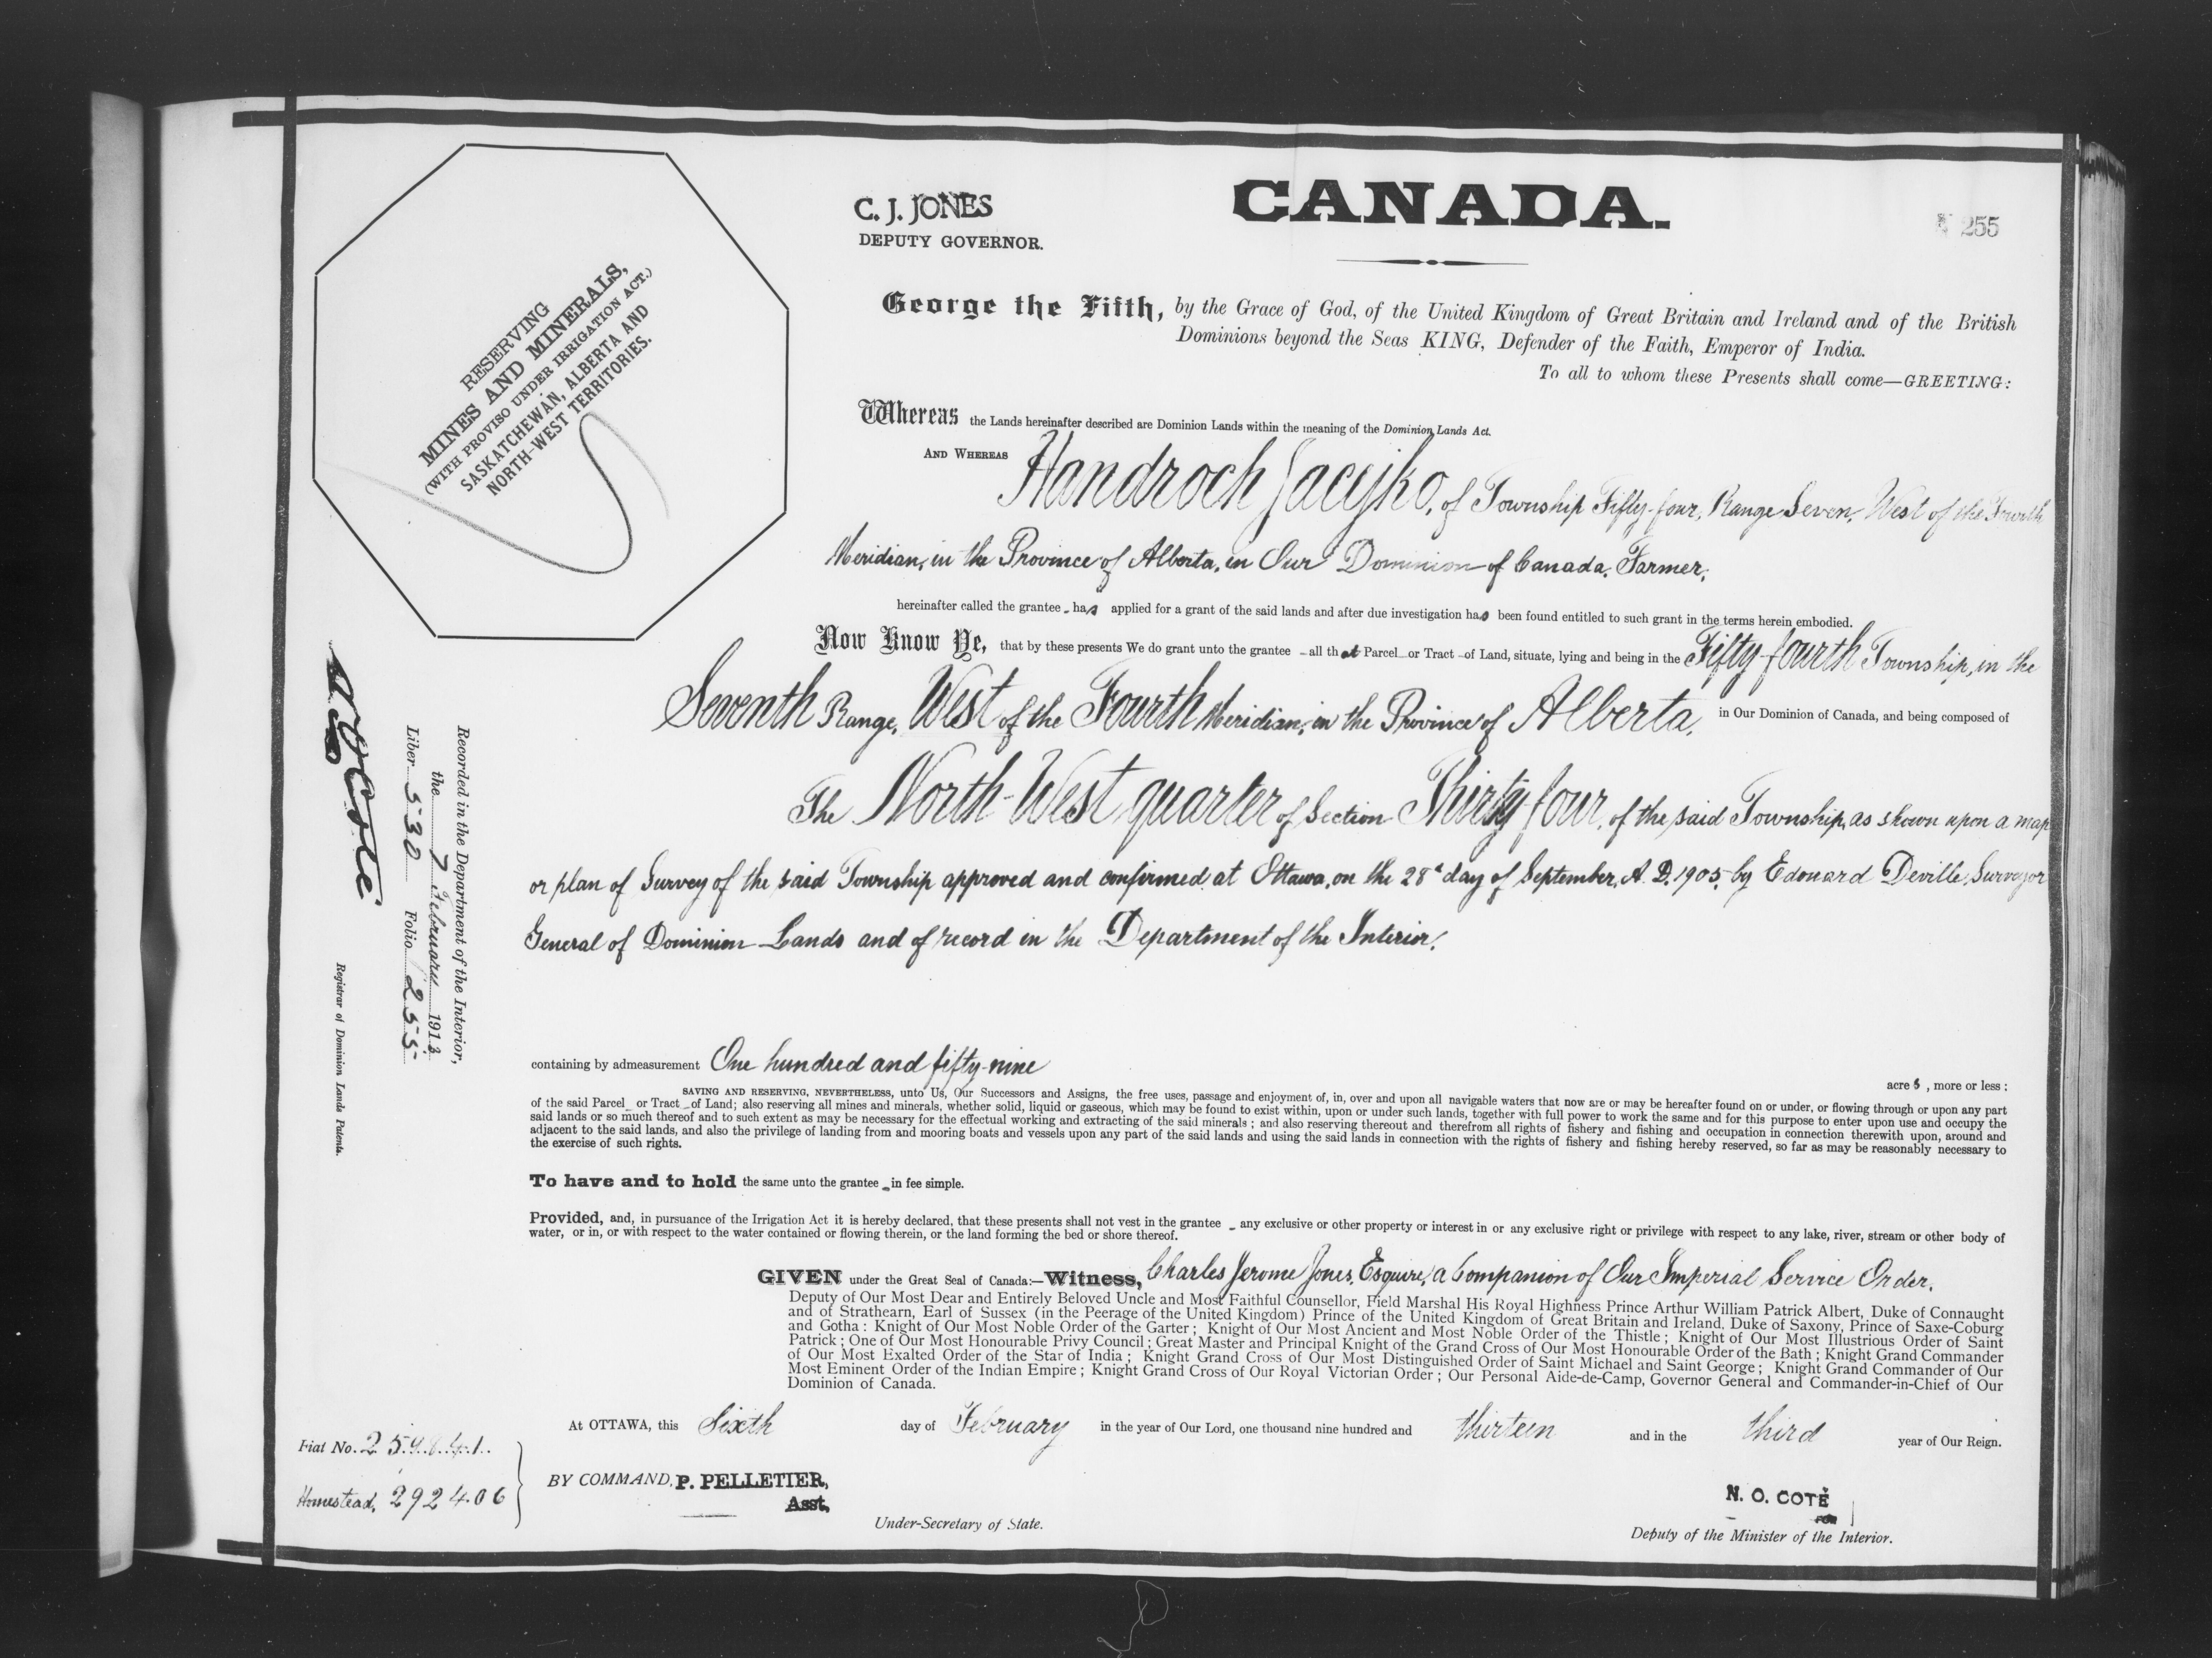 CANADA.
C. J. JONES
DEPUTY GOVERNOR.
255
RESERVING
MINES AND MINERALS,
(WITH PROVISO UNDER IRRIGATION ACT.)
SASKATCHEWAN, ALBERTA AND
NORTH-WEST TERRITORIES.
George the Fifth, by the Grace of God, of the United Kingdom of Great Britain and Ireland and of the British
Dominions beyond the Seas KING, Defender of the Faith, Emperor of India.
To all to whom these Presents shall come—GREETING:
Whereas the Lands hereinafter described are Dominion Lands within the meaning of the Dominion Lands Act.
AND WHEREAS Handroch Jacyjko, of Township Fifty-four, Range Seven, West of the Fourth
Meridian, in the Province of Alberta, in Our Dominion of Canada, Farmer,
hereinafter called the grantee has applied for a grant of the said lands and after due investigation has been found entitled to such grant in the terms herein embodied.
Now Know Ye, that by these presents We do grant unto the grantee all that Parcel or Tract of Land, situate, lying and being in the Fifty-fourth Township, in the
Seventh Range, West of the Fourth Meridian, in the Province of Alberta, in Our Dominion of Canada, and being composed of
The North-West quarter of Section Thirty-four, of the said Township, as shown upon a map
or plan of Survey of the said Township approved and confirmed at Ottawa, on the 28th day of September, A. D. 1905, by Edouard Deville, Surveyor
General of Dominion Lands and of record in the Department of the Interior.
containing by admeasurement One hundred and fifty-nine
acres, more or less:
SAVING AND RESERVING, NEVERTHELESS, unto Us, Our Successors and Assigns, the free uses, passage and enjoyment of, in, over and upon all navigable waters that now are or may be hereafter found on or under, or flowing through or upon any part
of the said Parcel or Tract of Land; also reserving all mines and minerals, whether solid, liquid or gaseous, which may be found to exist within, upon or under such lands, together with full power to work the same and for this purpose to enter upon use and occupy the
said lands or so much thereof and to such extent as may be necessary for the effectual working and extracting of the said minerals; and also reserving thereout and therefrom all rights of fishery and fishing and occupation in connection therewith upon, around and
adjacent to the said lands, and also the privilege of landing from and mooring boats and vessels upon any part of the said lands and using the said lands in connection with the rights of fishery and fishing hereby reserved, so far as may be reasonably necessary to
the exercise of such rights.
To have and to hold the same unto the grantee in fee simple.
Provided, and, in pursuance of the Irrigation Act it is hereby declared, that these presents shall not vest in the grantee any exclusive or other property or interest in or any exclusive right or privilege with respect to any lake, river, stream or other body of
water, or in, or with respect to the water contained or flowing therein, or the land forming the bed or shore thereof.
GIVEN under the Great Seal of Canada:—Witness, Charles Jerome Jones, Esquire, a Companion of Our Imperial Service Order,
Deputy of Our Most Dear and Entirely Beloved Uncle and Most Faithful Counsellor, Field Marshal His Royal Highness Prince Arthur William Patrick Albert, Duke of Connaught
and of Strathearn, Earl of Sussex (in the Peerage of the United Kingdom) Prince of the United Kingdom of Great Britain and Ireland, Duke of Saxony, Prince of Saxe-Coburg
and Gotha: Knight of Our Most Noble Order of the Garter; Knight of Our Most Ancient and Most Noble Order of the Thistle; Knight of Our Most Illustrious Order of Saint
Patrick; One of Our Most Honourable Privy Council; Great Master and Principal Knight of the Grand Cross of Our Most Honourable Order of the Bath; Knight Grand Commander
of Our Most Exalted Order of the Star of India; Knight Grand Cross of Our Most Distinguished Order of Saint Michael and Saint George; Knight Grand Commander of Our
Most Eminent Order of the Indian Empire; Knight Grand Cross of Our Royal Victorian Order; Our Personal Aide-de-Camp, Governor General and Commander-in-Chief of Our
Dominion of Canada.
At OTTAWA, this Sixth day of February in the year of Our Lord, one thousand nine hundred and thirteen and in the third year of Our Reign.
BY COMMAND, P. PELLETIER,
Asst,
Under-Secretary of State.
N. O. COTÉ
FOR
Deputy of the Minister of the Interior.
Fiat No. 259841
Homestead, 292406
Recorded in the Department of the Interior,
the 7 February 1913
Liber 530 Folio 255
N O Coté
Registrar of Dominion Lands Patents.